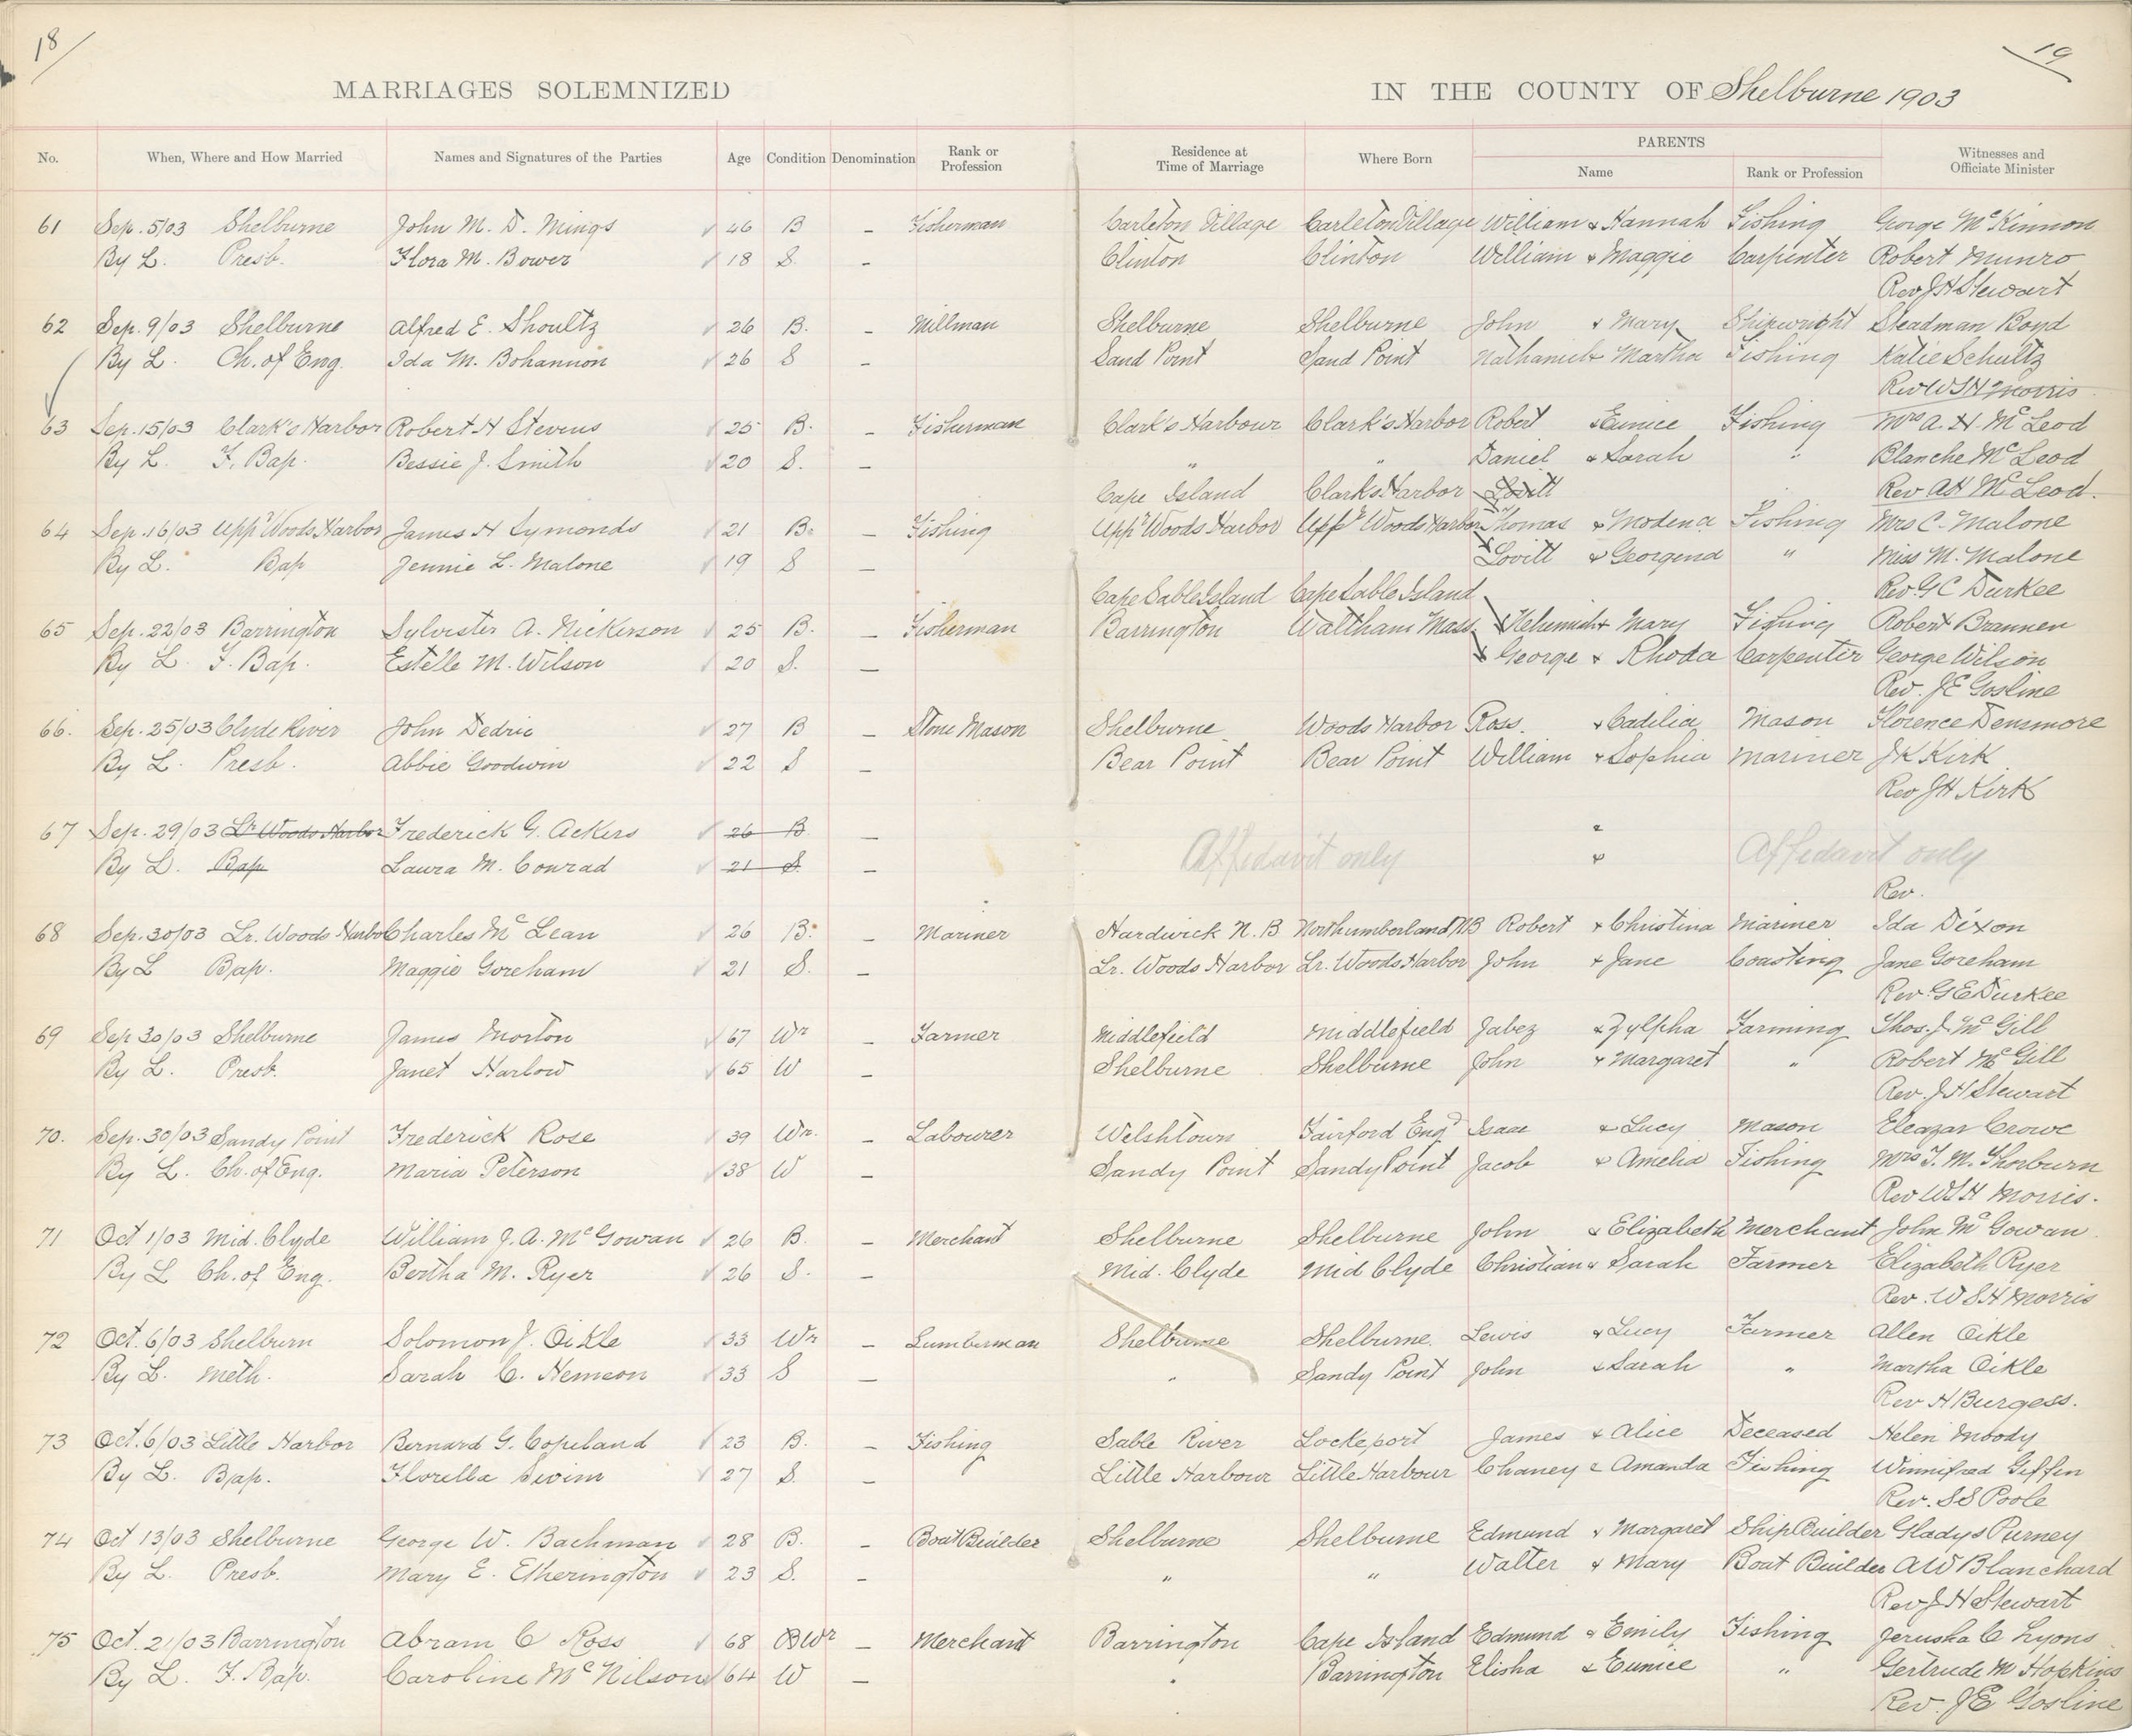 18 19
MARRIAGES SOLEMNIZED IN THE COUNTY OF Shelburne 1903
No. When, Where and How Married Names and Signatures of the Parties Age Condition Denomination Rank or Profession Residence at Time of Marriage Where Born PARENTS Name Rank or Profession Witnesses and Officiate Minister
61 Sep. 5/03 Shelburne John M. D. Mings 46 B Fisherman Carleton Village Carleton Village William & Hannah Fishing George McKinnon
By L. Presb. Flora M. Bower 18 S. - Clinton Clinton William & Maggie Carpenter Robert Munro
Rev J H Stewart
62 Sep. 9/03 Shelburne Alfred E. Shoultz 26 B. - Millman Shelburne Shelburne John & Mary Shipwright Steadman Boyd
By L. Ch. of Eng. Ida M. Bohannon 26 S - Sand Point Sand Point Nathaniel & Martha Fishing Katie Schultz
Rev W S H Morris
63 Sep. 15/03 Clark's Harbor Robert H Stevens 25 B. - Fisherman Clark's Harbour Clark's Harbor Robert & Eunice Fishing Mrs A. H. McLeod
By L. F. Bap. Bessie J. Smith 20 S. - " " Daniel & Sarah " Blanche McLeod
Cape Island Clark's Harbor Lovitt Rev A H McLeod.
64 Sep. 16/03 Uppr Woods Harbor James H Symonds 21 B. - Fishing Uppr Woods Harbor Uppr Woods Harbor Thomas & Modena Fishing Mrs C. Malone
By L. Bap Jennie L. Malone 19 S - Lovitt & Georgena " Miss M. Malone
Cape Sable Island Cape Sable Island Rev. G C Durkee
65 Sep. 22/03 Barrington Sylvester A. Nickerson 25 B. - Fisherman Barrington Waltham Mass. Nehemiah & Mary Fishing Robert Brannen
By L. F. Bap. Estelle M. Wilson 20 S. - George & Rhoda Carpenter George Wilson
Rev. J E Gosline
66. Sep. 25/03 Clyde River John Dedric 27 B - Stone Mason Shelburne Woods Harbor Ross. & Cadilia Mason Florence Densmore
By L. Presb. Abbie Goodwin 22 S - Bear Point Bear Point William & Sophia Mariner J K Kirk
Rev J H Kirk
67 Sep. 29/03 Lr Woods Harbor Frederick G. Ackers 26 B - &
By L. Bap Laura M. Conrad 21 S - Affedavit only & Affedavit only
Rev.
68 Sep. 30/03 Lr. Woods Harbor Charles McLean 26 B. - Mariner Hardwick N. B Northumberland, NB Robert & Christina Mariner Ida Dixon
By L Bap. Maggie Goreham 21 S. - Lr. Woods Harbor Lr. Woods Harbor John & Jane Coasting Jane Goreham
Rev. G E Durkee
69 Sep 30/03 Shelburne James Morton 67 Wr - Farmer Middlefield Middlefield Jabez & Zylpha Farming Thos. J. McGill
By L. Presb. Janet Harlow 65 W - Shelburne Shelburne John & Margaret " Robert McGill
Rev. J H Stewart
70. Sep. 30/03 Sandy Point Frederick Rose 39 Wr. - Labourer Welshtown Fairford Engd Isaac & Lucy Mason Eleazar Crowe
By L. Ch. of Eng. Maria Peterson 38 W - Sandy Point Sandy Point Jacob & Amelia Fishing Mrs T. M. Thorburn
Rev W S H Morris.
71 Oct 1/03 Mid. Clyde William J. A. McGowan 26 B. - Merchant Shelburne Shelburne John & Elizabeth Merchant John McGowan
By L Ch. of Eng. Bertha M. Ryer 26 S. - Mid. Clyde Mid Clyde Christian & Sarah Farmer Elizabeth Ryer
Rev. W S H Morris
72 Oct. 6/03 Shelburn Solomon J. Oikle 33 Wr - Lumberman Shelburne Shelburne. Lewis & Lucy Farmer Allen Oikle
By L. Meth. Sarah C. Hemeon 33 S - " Sandy Point John & Sarah " Martha Oikle
Rev. H Burgess.
73 Oct. 6/03 Little Harbor Bernard G. Copeland 23 B. - Fishing Sable River Lockeport James & Alice Deceased Helen Moody
By L. Bap. Florella Swim 27 S. - Little Harbour Little Harbour Chaney & Amanda Fishing Winnifred Giffin
Rev. S S Poole
74 Oct 13/03 Shelburne George W. Bachman 28 B. - Boat Builder Shelburne Shelburne Edmund & Margaret Ship Builder Gladys Purney
By L. Presb. Mary E. Etherington 23 S. - " " Walter & Mary Boat Builder A W Blanchard
Rev J H Stewart
75 Oct. 21/03 Barrington Abram C Ross 68 B Wr - Merchant Barrington Cape Island Edmund & Emily Fishing Jerusha C Lyons
By L. F. Bap. Caroline McNilson 64 W - " Barrington Elisha & Eunice " Gertrude M Hopkins
Rev. J E Gosline